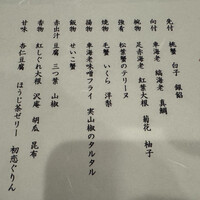 先付 桃蟹 白子 銀餡
向付 車海老 縞海老 真鯛
椀物 足赤海老 紅葉大根 菊花 柚子
強肴 松葉蟹のテリーヌ
焼物 毛蟹 いくら 洋梨
揚物 車海老味噌フライ 実山椒のタルタル
飯物 せいこ蟹
赤出汁 豆腐 三つ葉 山椒
香物 紅しぐれ大根 沢庵 胡瓜 昆布
甘味 杏仁豆腐 ほうじ茶ゼリー 初恋ぐりん